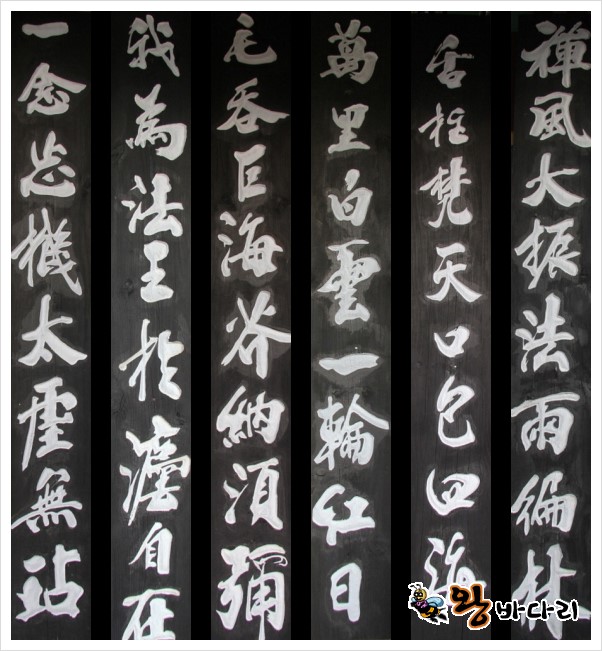 禪風大振法雨徧林
舌柱梵天口包四海
萬里白雲一輪紅日
毛呑巨海芥納須彌
我為法王於灋自在
一念忘機太虛無玷
왕바다리